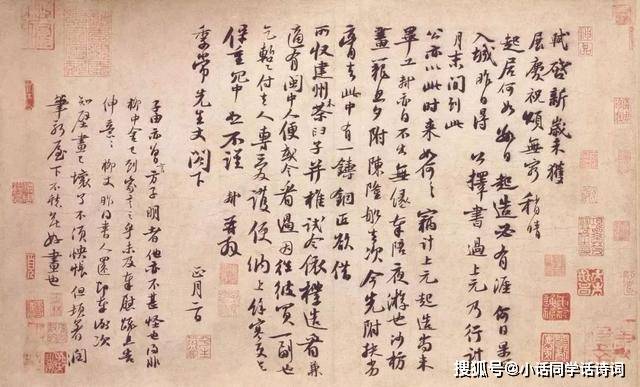 軾啓新歲未獲
展慶祝頌無窮稍晴
起居何如數日起造必有涯何日果可
入城昨日得公擇書過上元乃行計
月末間到此
公亦以此時來如何〃竊計上元起造尚未
畢工軾亦自不出無緣奉陪夜游也沙枋
畫籠旦夕附陳隆船去次今先附扶劣
膏去此中有一鑄銅匠欲借
所收建州木茶臼子并椎試令依樣造看兼
適有閩中人便或令看過因往彼買一副也
乞暫付去人專愛護便納上餘寒更乞
保重冗中恕不謹軾再拜
季常先生丈閣下
正月二日
子由亦曾言方子明者他亦不甚怪也得非
柳中舍已到家言之乎未及奉慰疏且告
伸意〃柳丈昨得書人還即奉謝次
知壁畫已壞了不須怏悵但頓着潤
筆新屋下不愁無好畫也
搜狐号@小话同学话诗词